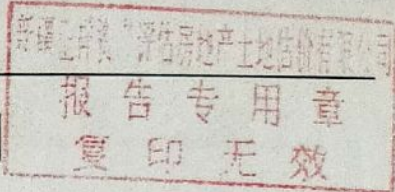 评估房地产土地估价有限公司
报告专用章
复印无效